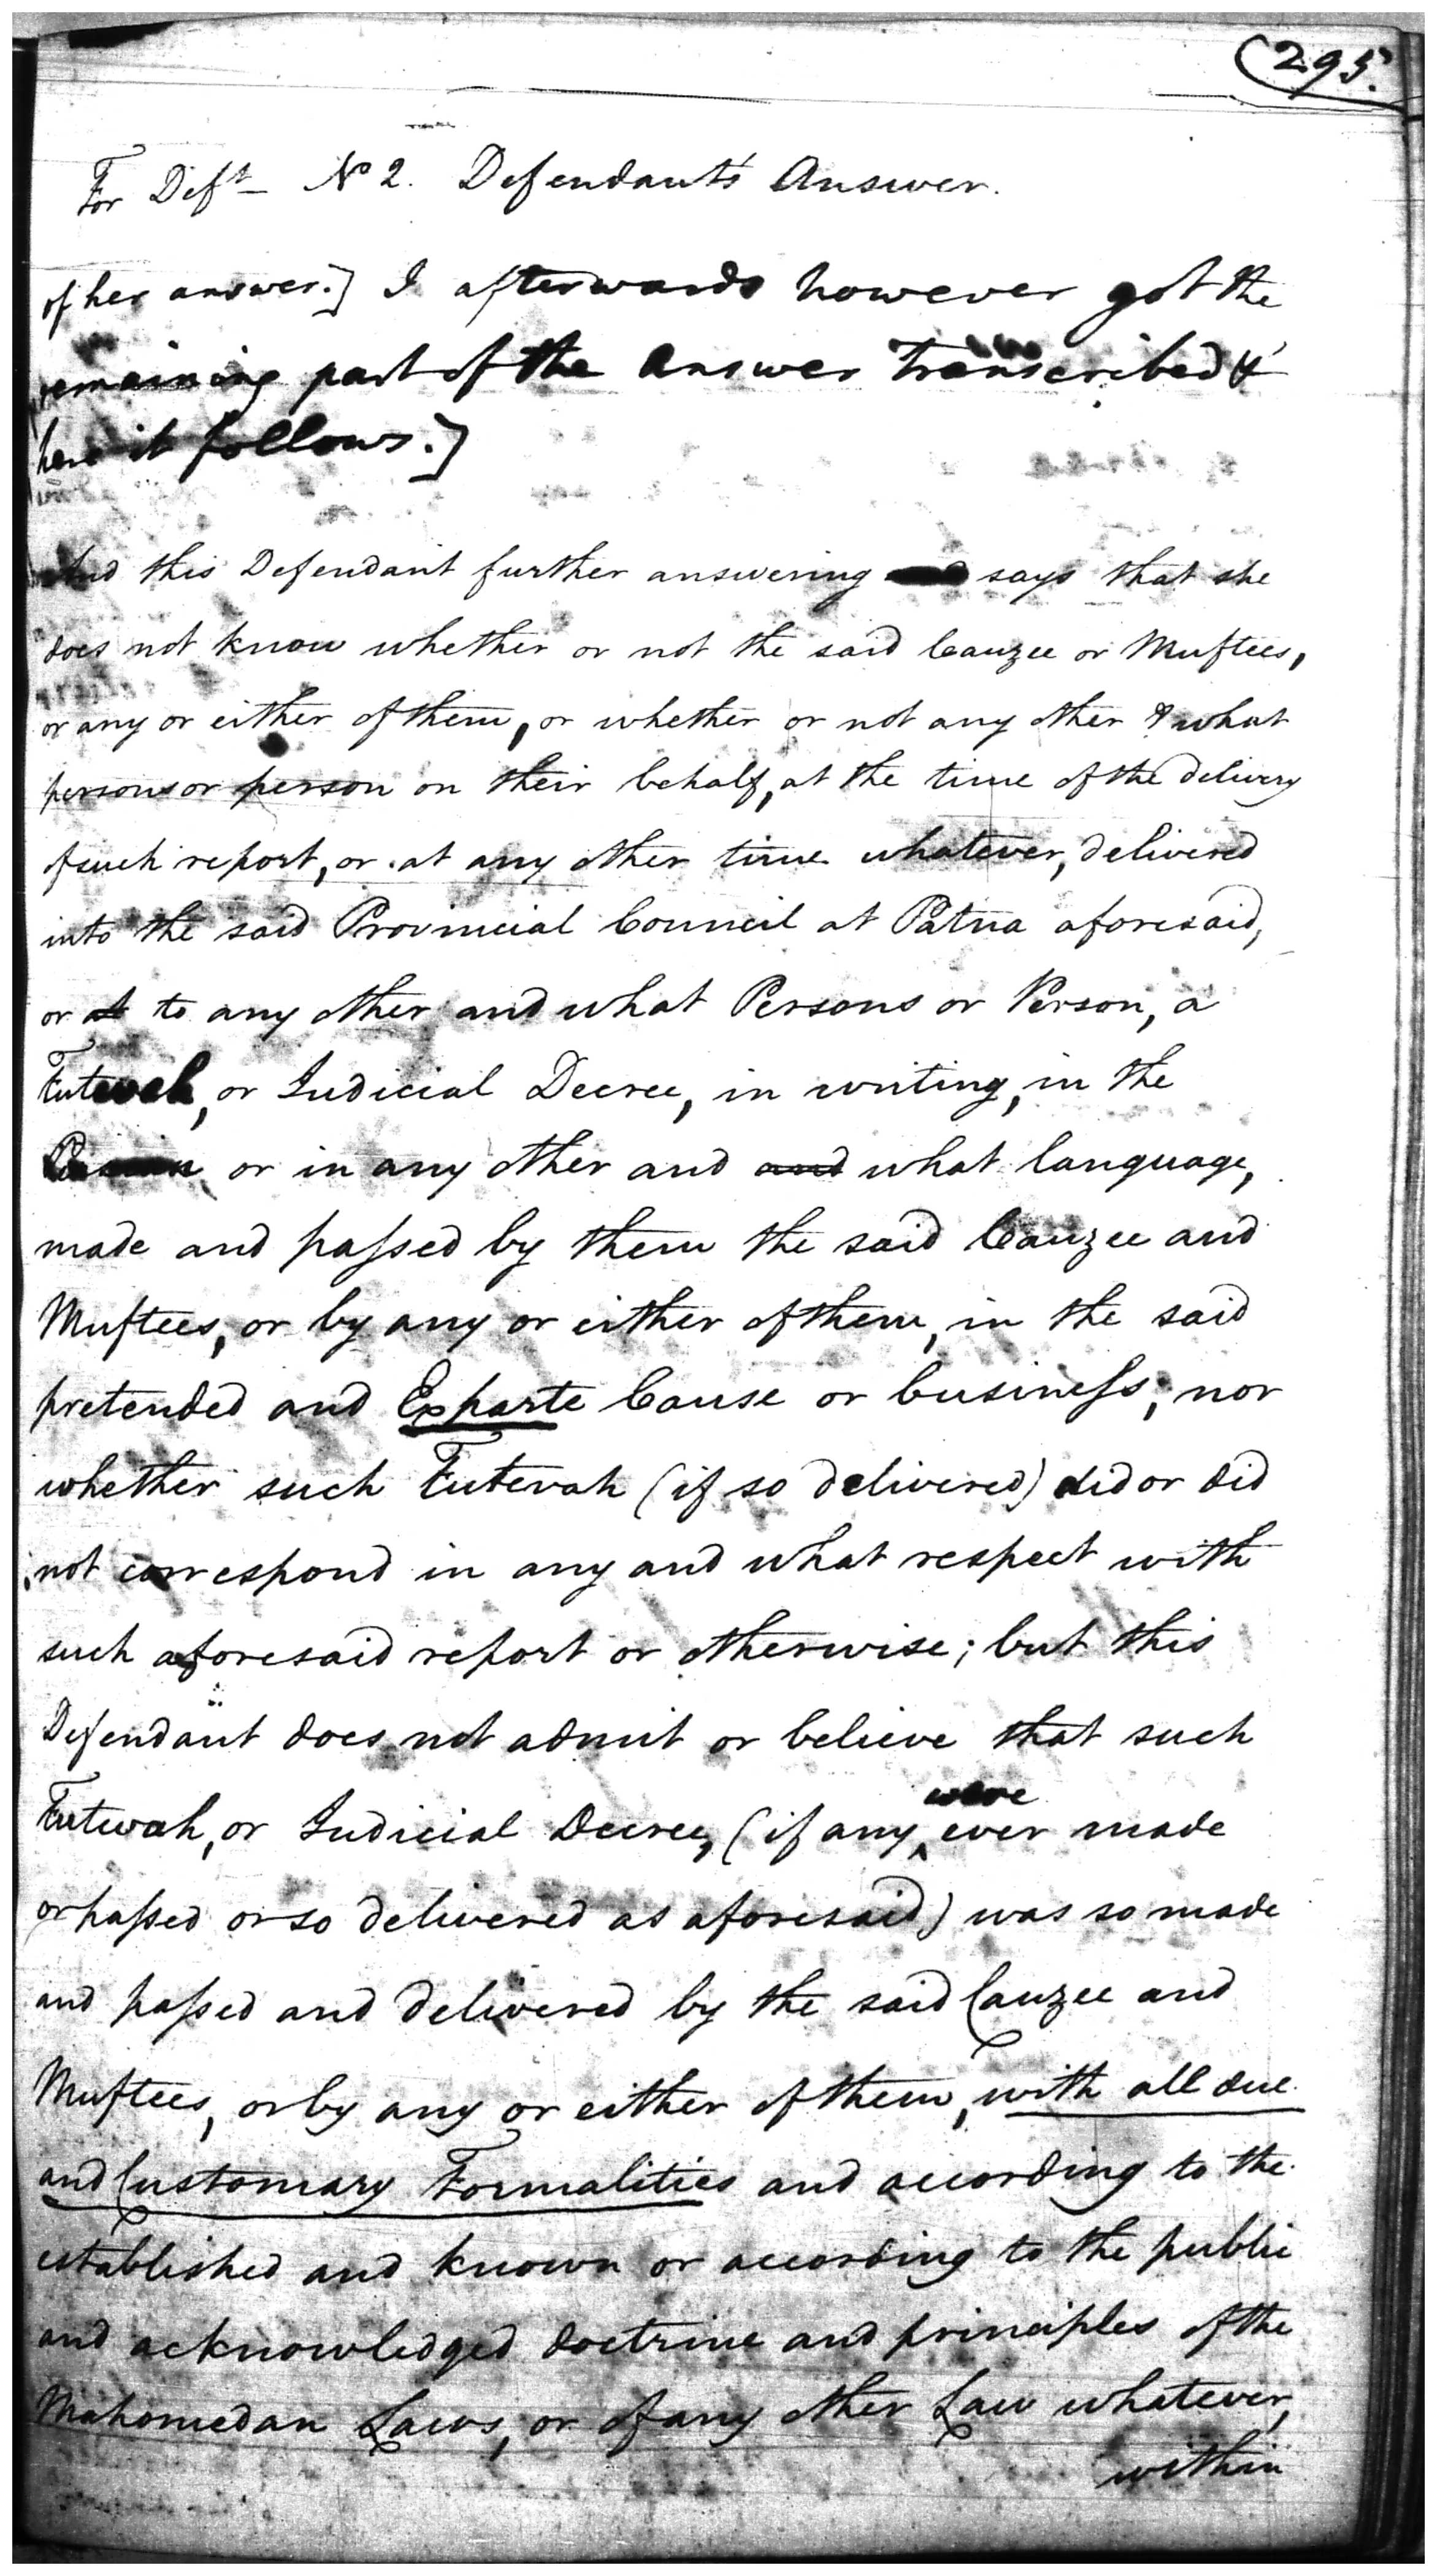 (295.
For Deft. No 2. Defendant's Answer.
of her answer.] I afterwards however got the
remaining part of the Answer transcribed &
here it follows.]
And this Defendant further answering says that she
does not know whether or not the said Cauzee or Muftees,
or any or either of them, or whether or not any other & what
persons or person on their behalf, at the time of the delivery
of such report, or at any other time whatever, delivered
into the said Provincial Council at Patna aforesaid,
or at to any other and what Persons or Person, a
Futwah, or Judicial Decree, in writing, in the
or in any other and and what language,
made and passed by them the said Cauzee and
Muftees, or by any or either of them, in the said
pretended and Exparte Cause or business; nor
whether such Futwah (if so delivered) did or did
not correspond in any and what respect with
such aforesaid report or otherwise; but this
Defendant does not admit or believe that such
Futwah, or Judicial Decree, (if any were ever made
or passed or so delivered as aforesaid) was so made
and passed and delivered by the said Cauzee and
Muftees, or by any or either of them, with all due
and Customary Formalities and according to the
established and known or according to the public
and acknowledged doctrine and principles of the
Mahomedan Laws, or of any other Law whatever,
within